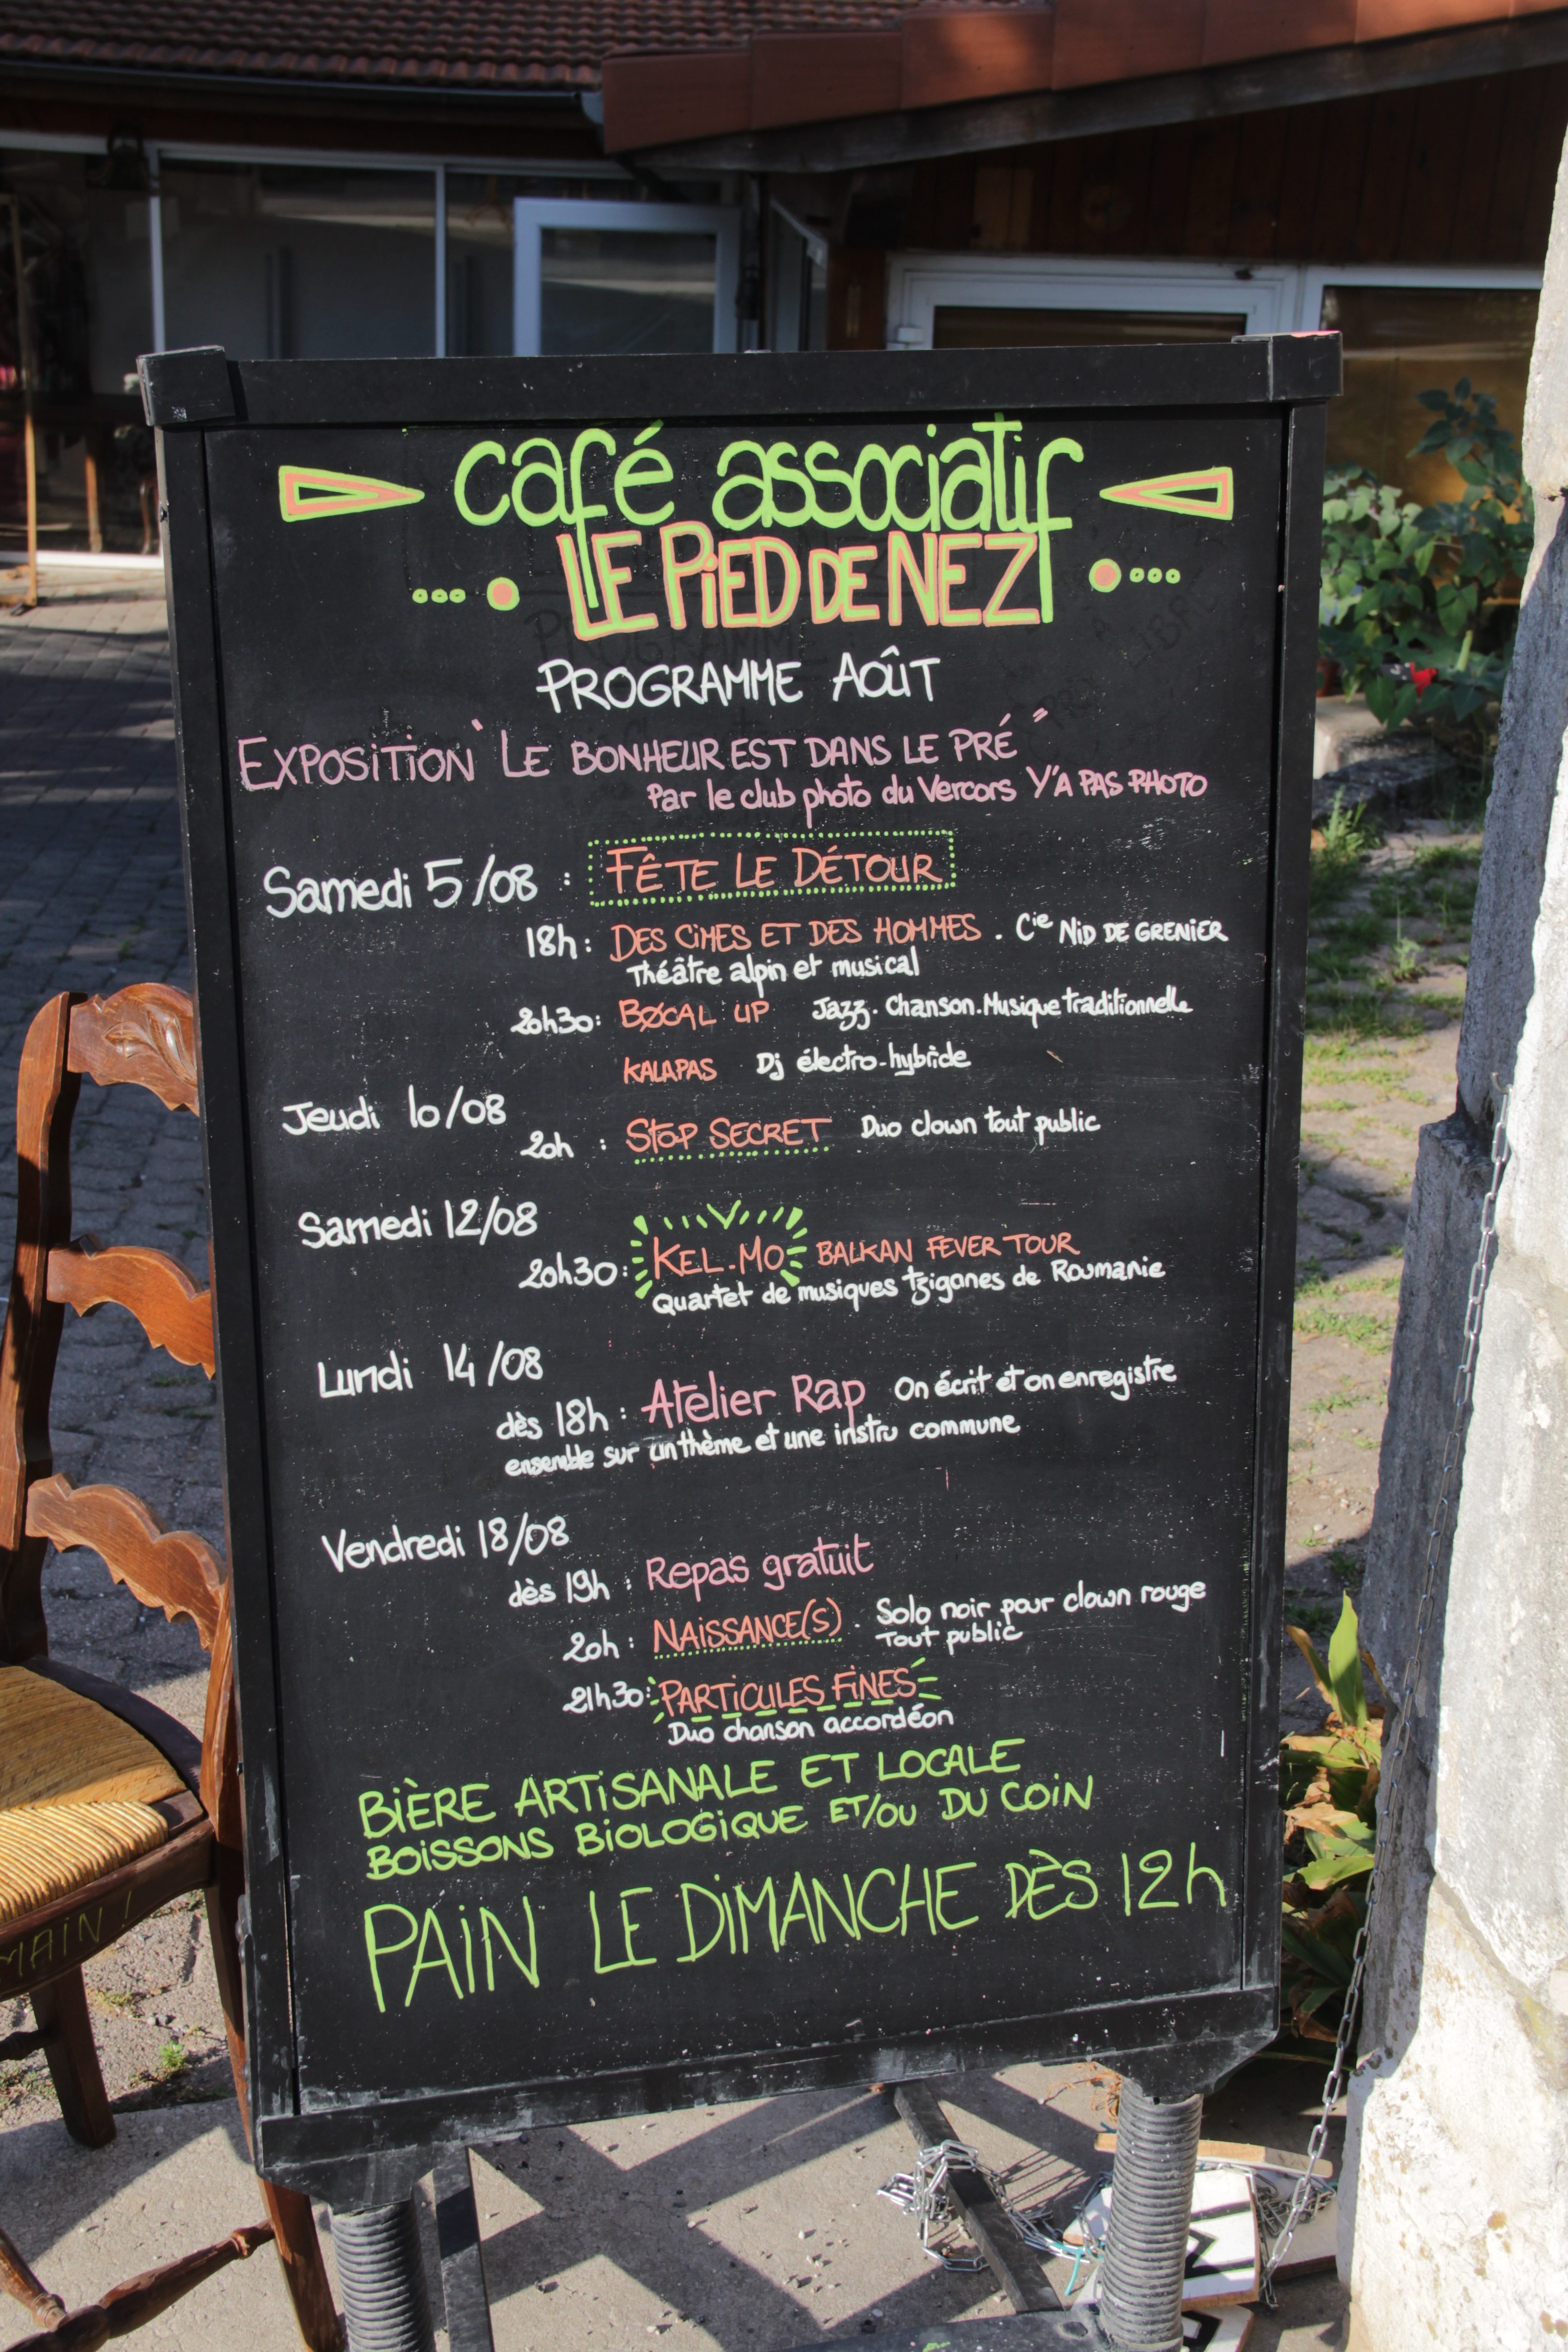 café associatif
LE PiED DE NEZ
PROGRAMME AOÛT
EXPOSITION "LE BONHEUR EST DANS LE PRÉ"
Par le club photo du Vercors Y'A PAS PHOTO
Samedi 5/08 : FÊTE LE DÉTOUR
18h : DES CIMES ET DES HOMMES . Cie NiD DE GRENIER
Théâtre alpin et musical
20h30 : BØCAL UP Jazz. Chanson. Musique traditionnelle
KALAPAS Dj électro-hybride
Jeudi 10/08
20h : StOP SECRET Duo clown tout public
Samedi 12/08
20h30 : KEL.MO BALKAN FEVER TOUR
Quartet de musiques tziganes de Roumanie
Lundi 14/08
dès 18h : Atelier Rap On écrit et on enregistre
ensemble sur un thème et une instru commune
Vendredi 18/08
dès 19h : Repas gratuit
20h : NAiSSANCE(S) . Solo noir pour clown rouge
Tout public
21h30 : PARTiCULES FiNES
Duo chanson accordéon
BiÈRE ARTiSANALE ET LOCALE
BOiSSONS BiOLOGiQUE ET/OU DU COiN
PAiN LE DiMANCHE DÈS 12h
MAIN !